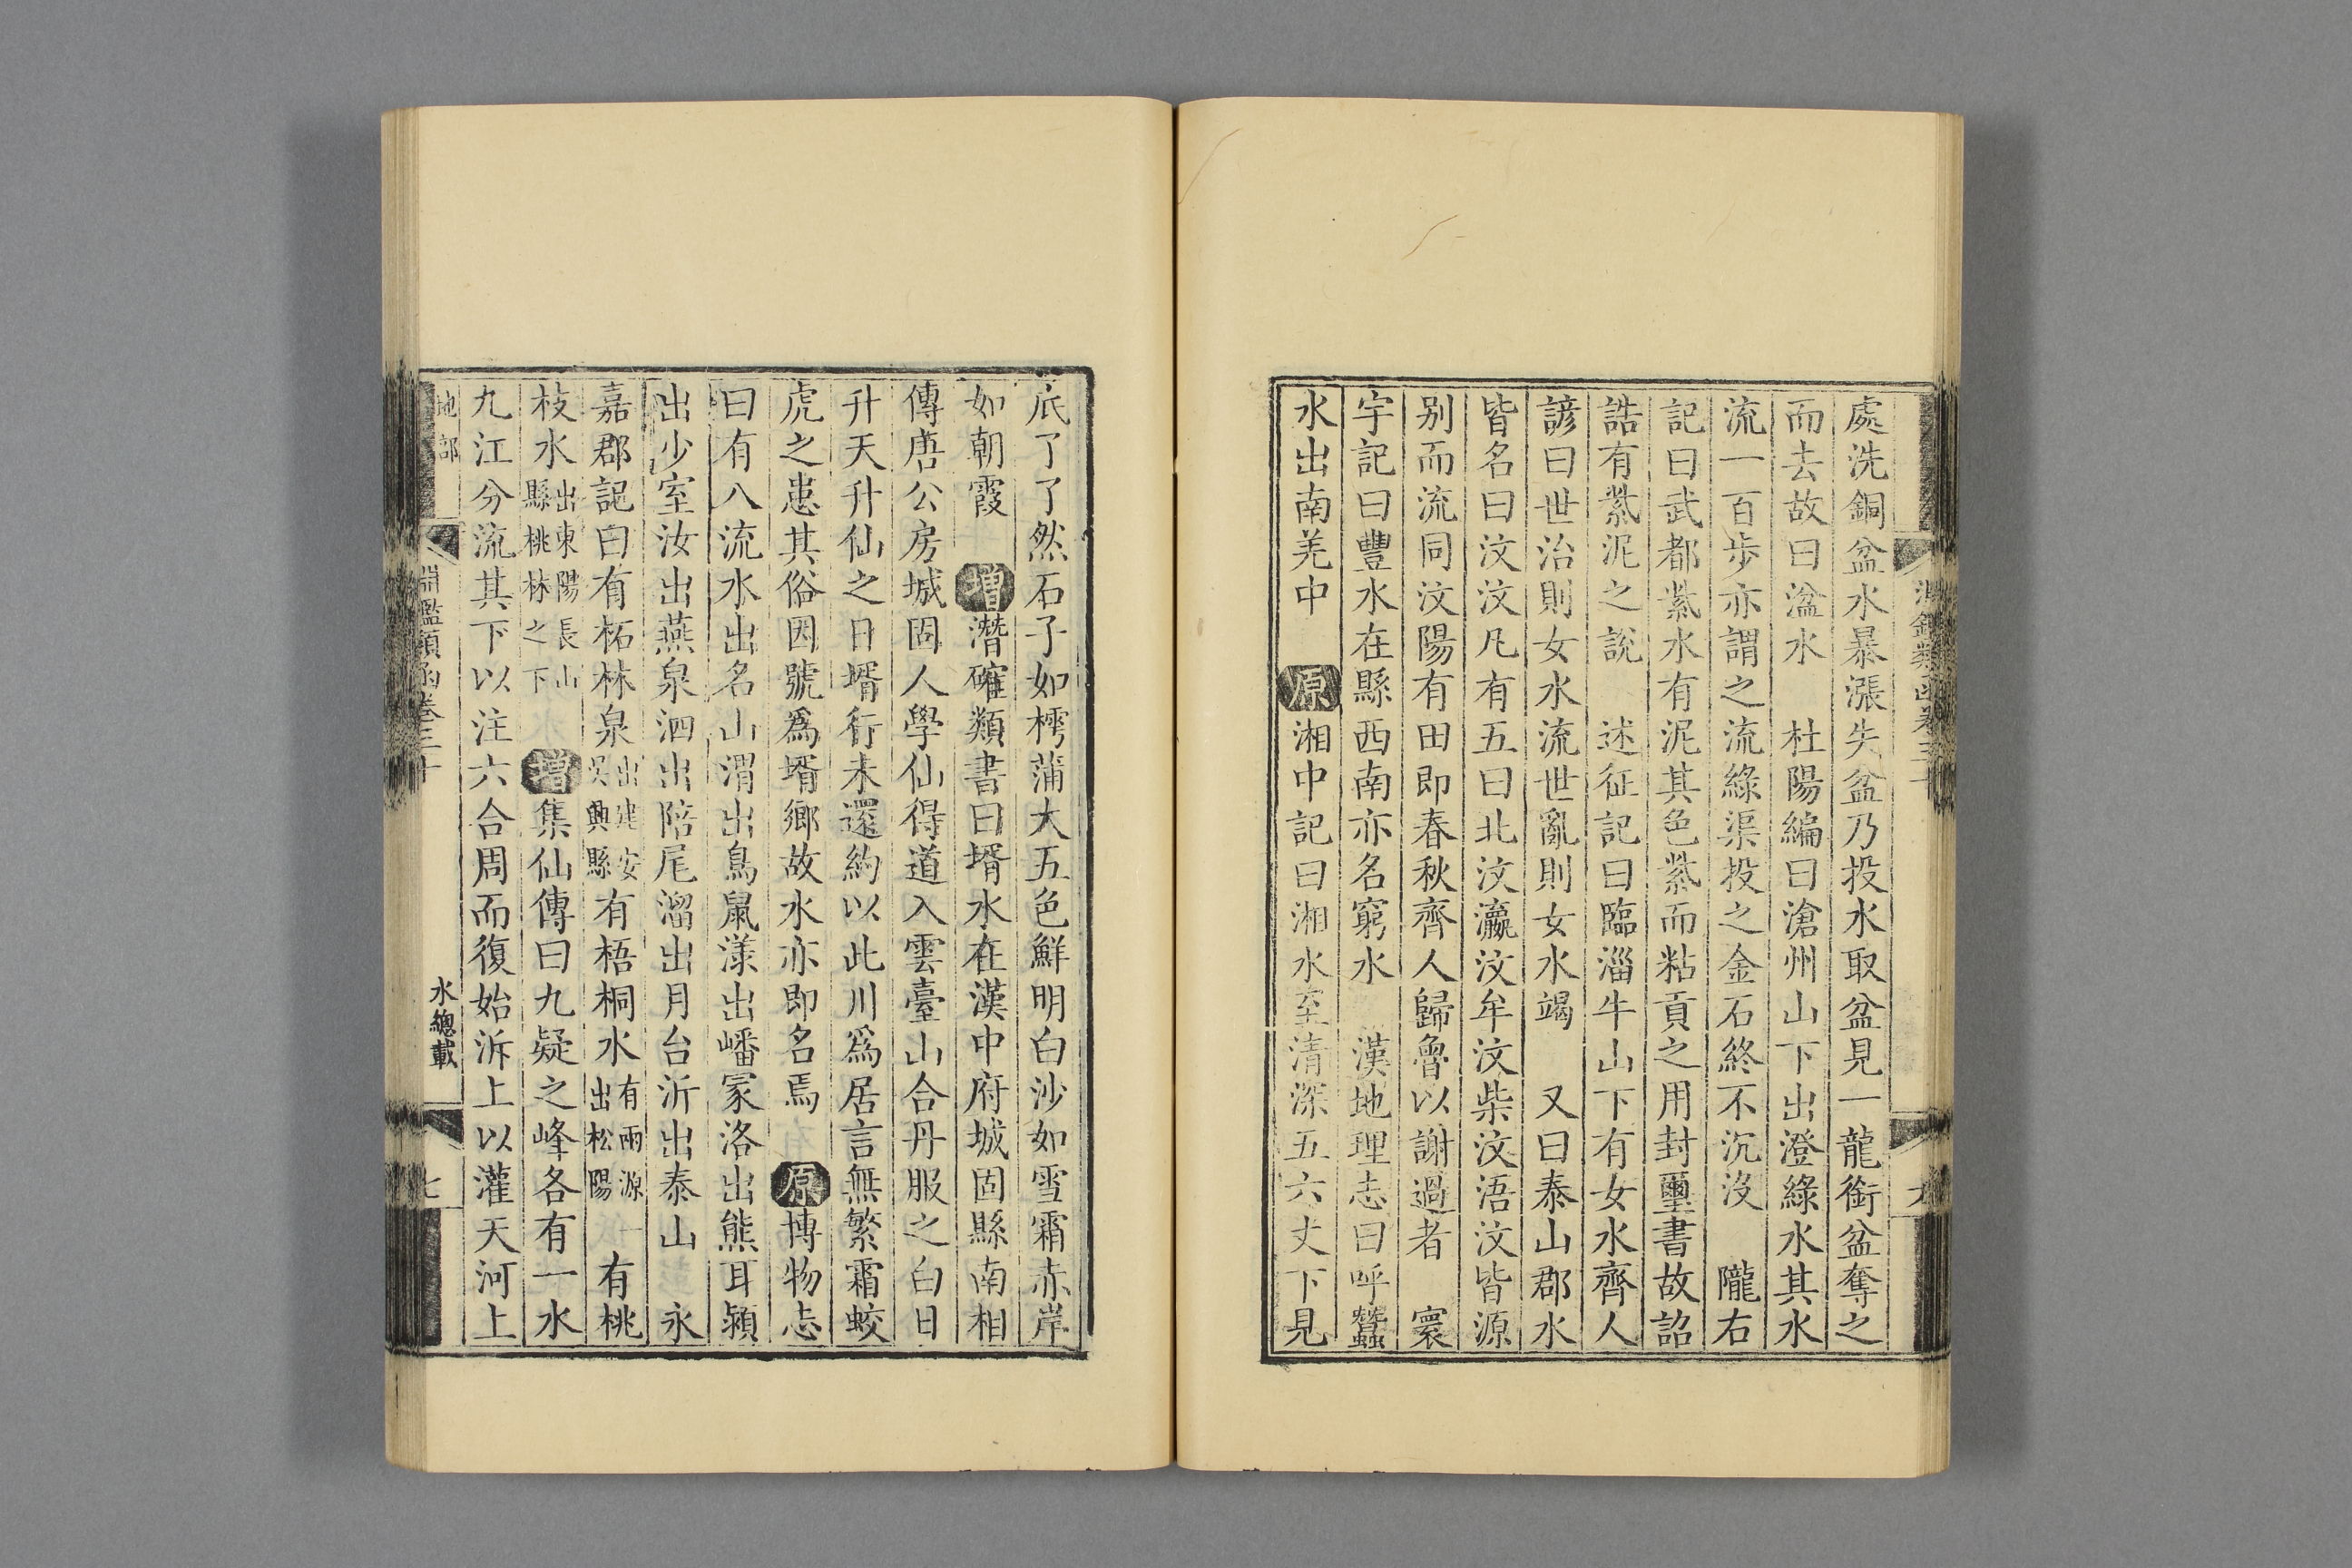 處洗銅盆水暴漲失盆乃投水取盆見一龍銜盆奪之
而去故曰湓水　杜陽編曰滄州山下出澄綠水其水
流一百步亦謂之流綠渠投之金石終不沉沒　隴右
記曰武都紫水有泥其色紫而粘貢之用封璽書故詔
誥有紫泥之說　述征記曰臨淄牛山下有女水齊人
諺曰世治則女水流世亂則女水竭　又曰泰山郡水
皆名曰汶汶凡有五曰北汶瀛汶牟汶柴汶浯汶皆源
别而流同汶陽有田即春秋齊人歸魯以謝過者　寰
宇記曰豐水在縣西南亦名窮水　漢地理志曰呼蠶
水出南羌中　原湘中記曰湘水至清深五六丈下見
底了了然石子如樗蒲大五色鮮明白沙如雪霜赤岸
如朝霞　增潛確類書曰壻水在漢中府城固縣南相
傳唐公房城固人學仙得道入雲臺山合丹服之白日
升天升仙之日壻行未還約以此川爲居言無繁霜蛟
虎之患其俗因號爲壻鄉故水亦即名焉　原博物志
曰有八流水出名山渭出鳥鼠漾出嶓冢洛出熊耳潁
出少室汝出燕泉泗出陪尾溜出月台沂出泰山　永
嘉郡記曰有柘林泉出建安吳興縣有梧桐水有兩源一出松陽有桃
枝水出東陽長山縣桃林之下　增集仙傳曰九疑之峰各有一水
九江分流其下以注六合周而復始泝上以灌天河上
地部　淵鑑類函卷三十　水總載　七